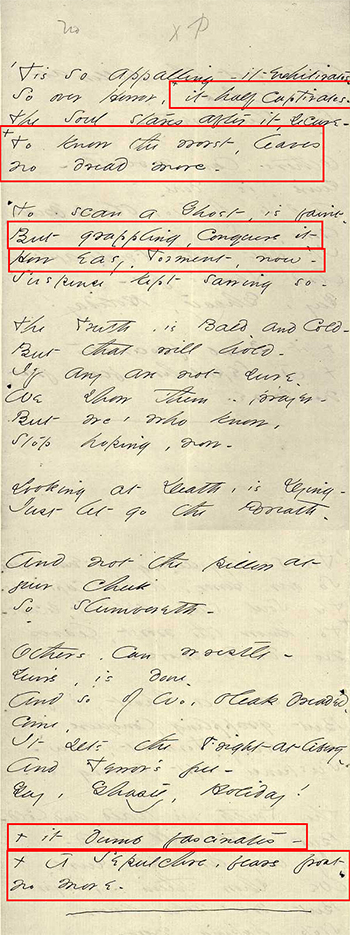 x P
'Tis so appalling - it exhilarates -
So over Horror, + it half captivates -
The Soul stares after it, secure -
+ To know the worst, leaves
no dread more -
To scan a Ghost, is faint -
But grappling, conquers it -
How easy, Torment, now -
Suspense kept sawing so -
The Truth, is Bald and Cold -
But that will hold -
If any are not sure -
We show them - prayer -
But we, who know,
Stop hoping, now -
Looking at Death, is Dying -
Just let go the Breath -
And not the pillow at
your cheek
So slumbereth -
Others, can wrestle -
Your's, is done -
And so of Wo, bleak dreaded -
Come,
It sets the Fright at liberty -
And Terror's free -
Gay, Ghastly, Holiday!
+ it dumb fascinates -
+ A Sepulchre, fears frost
no more -